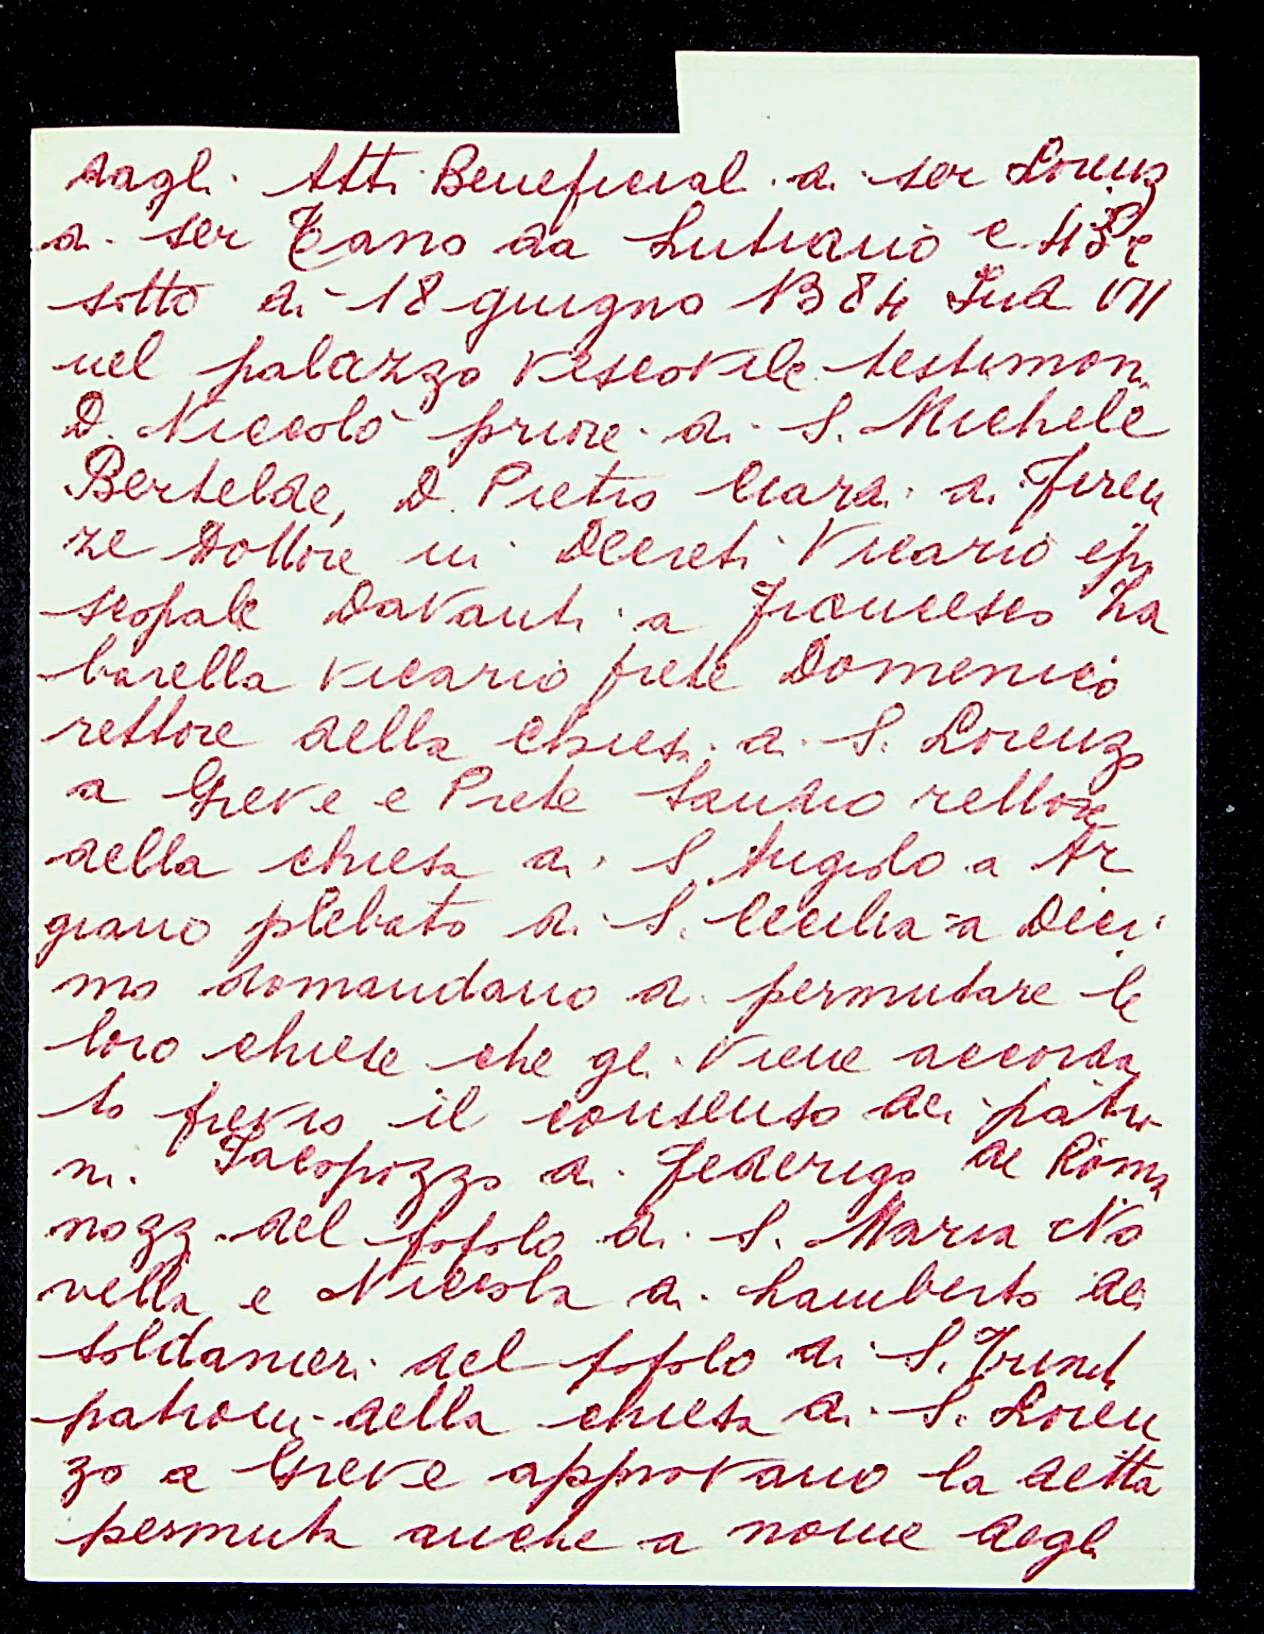 Dagli Atti Beneficiali di ser Lorenzo
di ser Tano da Lutiano c.
sotto di 18 giugno 1384 Ind VII
nel palazzo vescovile testimoni
D. Niccolò priore di S. Michele
Bertelde, D. Pietro di Firen
ze Dottore in Decreti Vicario epi
scopale Davanti a Francesco Za
barella vicario prete Domenico
rettore della chiesa di S. Lorenzo
a Greve e Prete Sandro rettore
della chiesa di S. Angiolo a Ar
giano plebato di S. Cecilia a Deci
mo domandano di permutare le
loro chiese che gli viene accorda
to previo il consenso dei patro
ni. Jacopozzo di Federigo de Roma
nozzi del popolo di S. Maria No
vella e Niccola di Lamberto dei
Soldanieri del popolo di S. Trinita
patroni della chiesa di S. Loren
zo a Greve approvano la detta
permuta anche a nome degli